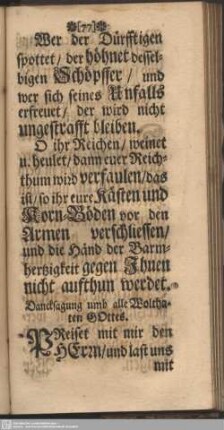 [77]
Wer der Dürfftigen
spottet / der höhnet dessel-
bigen Schöpffer / und
wer sich seines Unfalls
erfreuet / der wird nicht
ungestrafft bleiben.
O ihr Reichen / weinet
u. heulet / dann euer Reich-
thum wird verfaulen / das
ist / so ihr eure Kästen und
Korn-Böden vor den
Armen verschliessen /
und die Händ der Barm-
hertzigkeit gegen Ihnen
nicht aufthun werdet.
Dancksagung umb alle Woltha-
ten GOttes.
PReiset mit mir den
HErrn / und last uns
mit